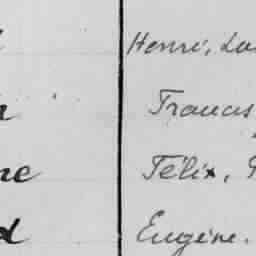 Henri, Lu
Francis
ne Félix,
d Eugène.